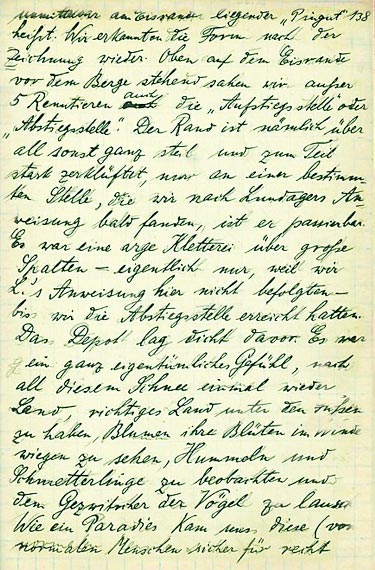 unmittelbar am Eisrande liegender „Pingut" 138
heißt. Wir erkannten die Form nach der
Zeichnung wieder. Oben auf dem Eisrande
vor dem Berge stehend sahen wir ausser
5 Renntieren auch die „Aufstiegsstelle" oder
„Abstiegsstelle". Der Rand ist nämlich über
all sonst ganz steil und zum Teil
stark zerklüftet, nur an einer bestimm-
ten Stelle, die wir nach Lundagers An-
weisung bald fanden, ist er passierbar.
Es war eine arge Kletterei über große
Spalten – eigentlich nur, weil wir
L.'s Anweisung hier nicht befolgten –
bis wir die Abstiegsstelle erreicht hatten.
Das Depot lag dicht davor. Es war
ein ganz eigentümliches Gefühl, nach
all diesem Schnee einmal wieder
Land, richtiges Land unter den Füßen
zu haben, Blumen ihre Blüten im Winde
wiegen zu sehen, Hummeln und
Schmetterlinge zu beobachten und
dem Gezwitscher der Vögel zu lauschen
Wie ein Paradies kam uns diese (von
normalen Menschen sicher für recht